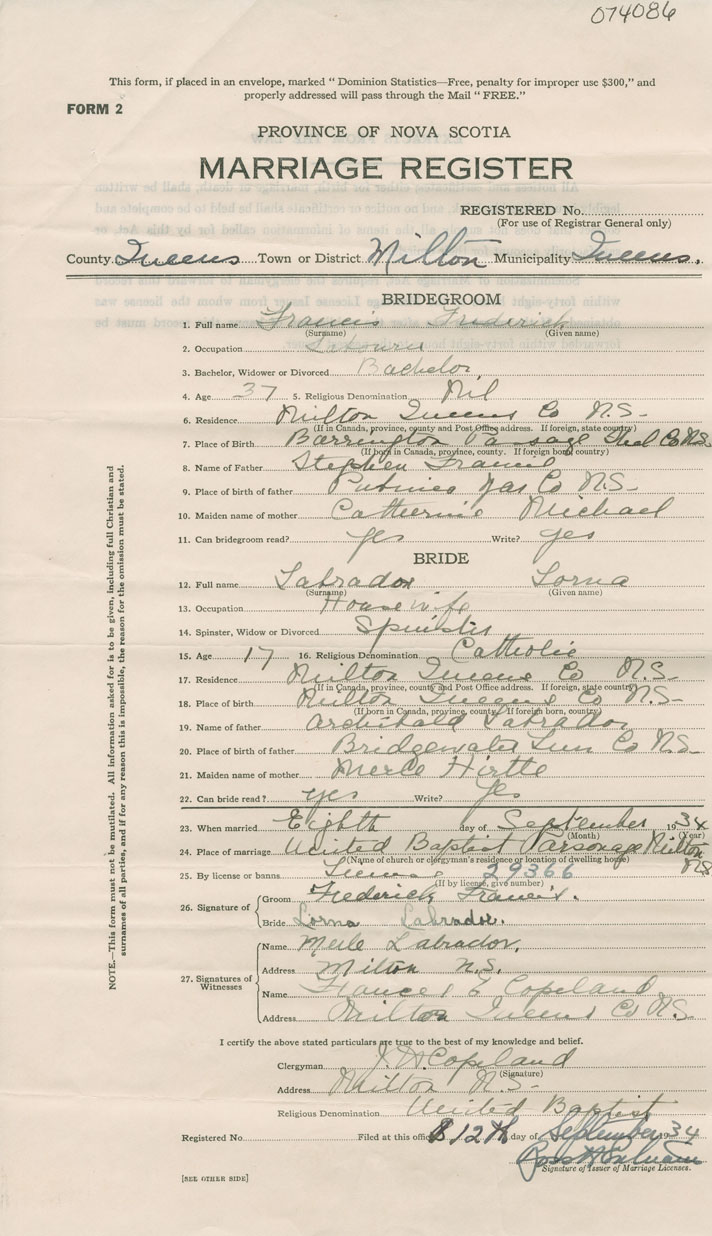 074086
This form, if placed in an envelope, marked "Dominion Statistics—Free, penalty for improper use $300," and
properly addressed will pass through the Mail "FREE."
FORM 2
PROVINCE OF NOVA SCOTIA
MARRIAGE REGISTER
REGISTERED No.
(For use of Registrar General only)
County Queens Town or District Milton Municipality Queens.
BRIDEGROOM
1. Full name Francis Frederick
(Surname) (Given name)
2. Occupation Labourer
3. Bachelor, Widower or Divorced Bachelor
4. Age 37 5. Religious Denomination Nil
6. Residence Milton Queens Co N.S.
(If in Canada, province, county and Post Office address. If foreign, state country)
7. Place of Birth Barrington Passage Shel Co N.S.
(If born in Canada, province, county. If foreign born, country)
8. Name of Father Stephen Francis
9. Place of birth of father Co N.S.
10. Maiden name of mother Catherine Michael
11. Can bridegroom read? yes Write? yes
BRIDE
12. Full name Labrador Lorna
(Surname) (Given name)
13. Occupation Housewife
14. Spinster, Widow or Divorced Spinster
15. Age 17 16. Religious Denomination Catholic
17. Residence Milton Queens Co N.S.
(If in Canada, province, county and Post Office address. If foreign, state country)
18. Place of birth Milton Queens Co N.S.
(If born in Canada, province, county. If foreign born, county)
19. Name of father Archibald Labrador
20. Place of birth of father Bridgewater Lun Co N.S.
21. Maiden name of mother Merle Hirtle
22. Can bride read? yes Write? yes
23. When married Eighth day of September 1934
(Month) (Year)
24. Place of marriage United Baptist Parsonage Milton NS
(Name of church or clergyman's residence or location of dwelling house)
25. By license or banns License 29366
(If by license, give number)
26. Signature of
Groom Frederick Francis.
Bride Lorna Labrador.
27. Signatures of Witnesses
Name Merle Labrador.
Address Milton N.S.
Name Frances E Copeland
Address Milton Queens Co N.S.
I certify the above stated particulars are true to the best of my knowledge and belief.
Clergyman Copeland
(Signature)
Address Milton N.S.
Religious Denomination United Baptist
Registered No. Filed at this office 12th day of September 1934
Signature of Issuer of Marriage Licenses.
[SEE OTHER SIDE]
NOTE.—This form must not be mutilated. All information asked for is to be given, including full Christian and
surnames of all parties, and if for any reason this is impossible, the reason for the omission must be stated.